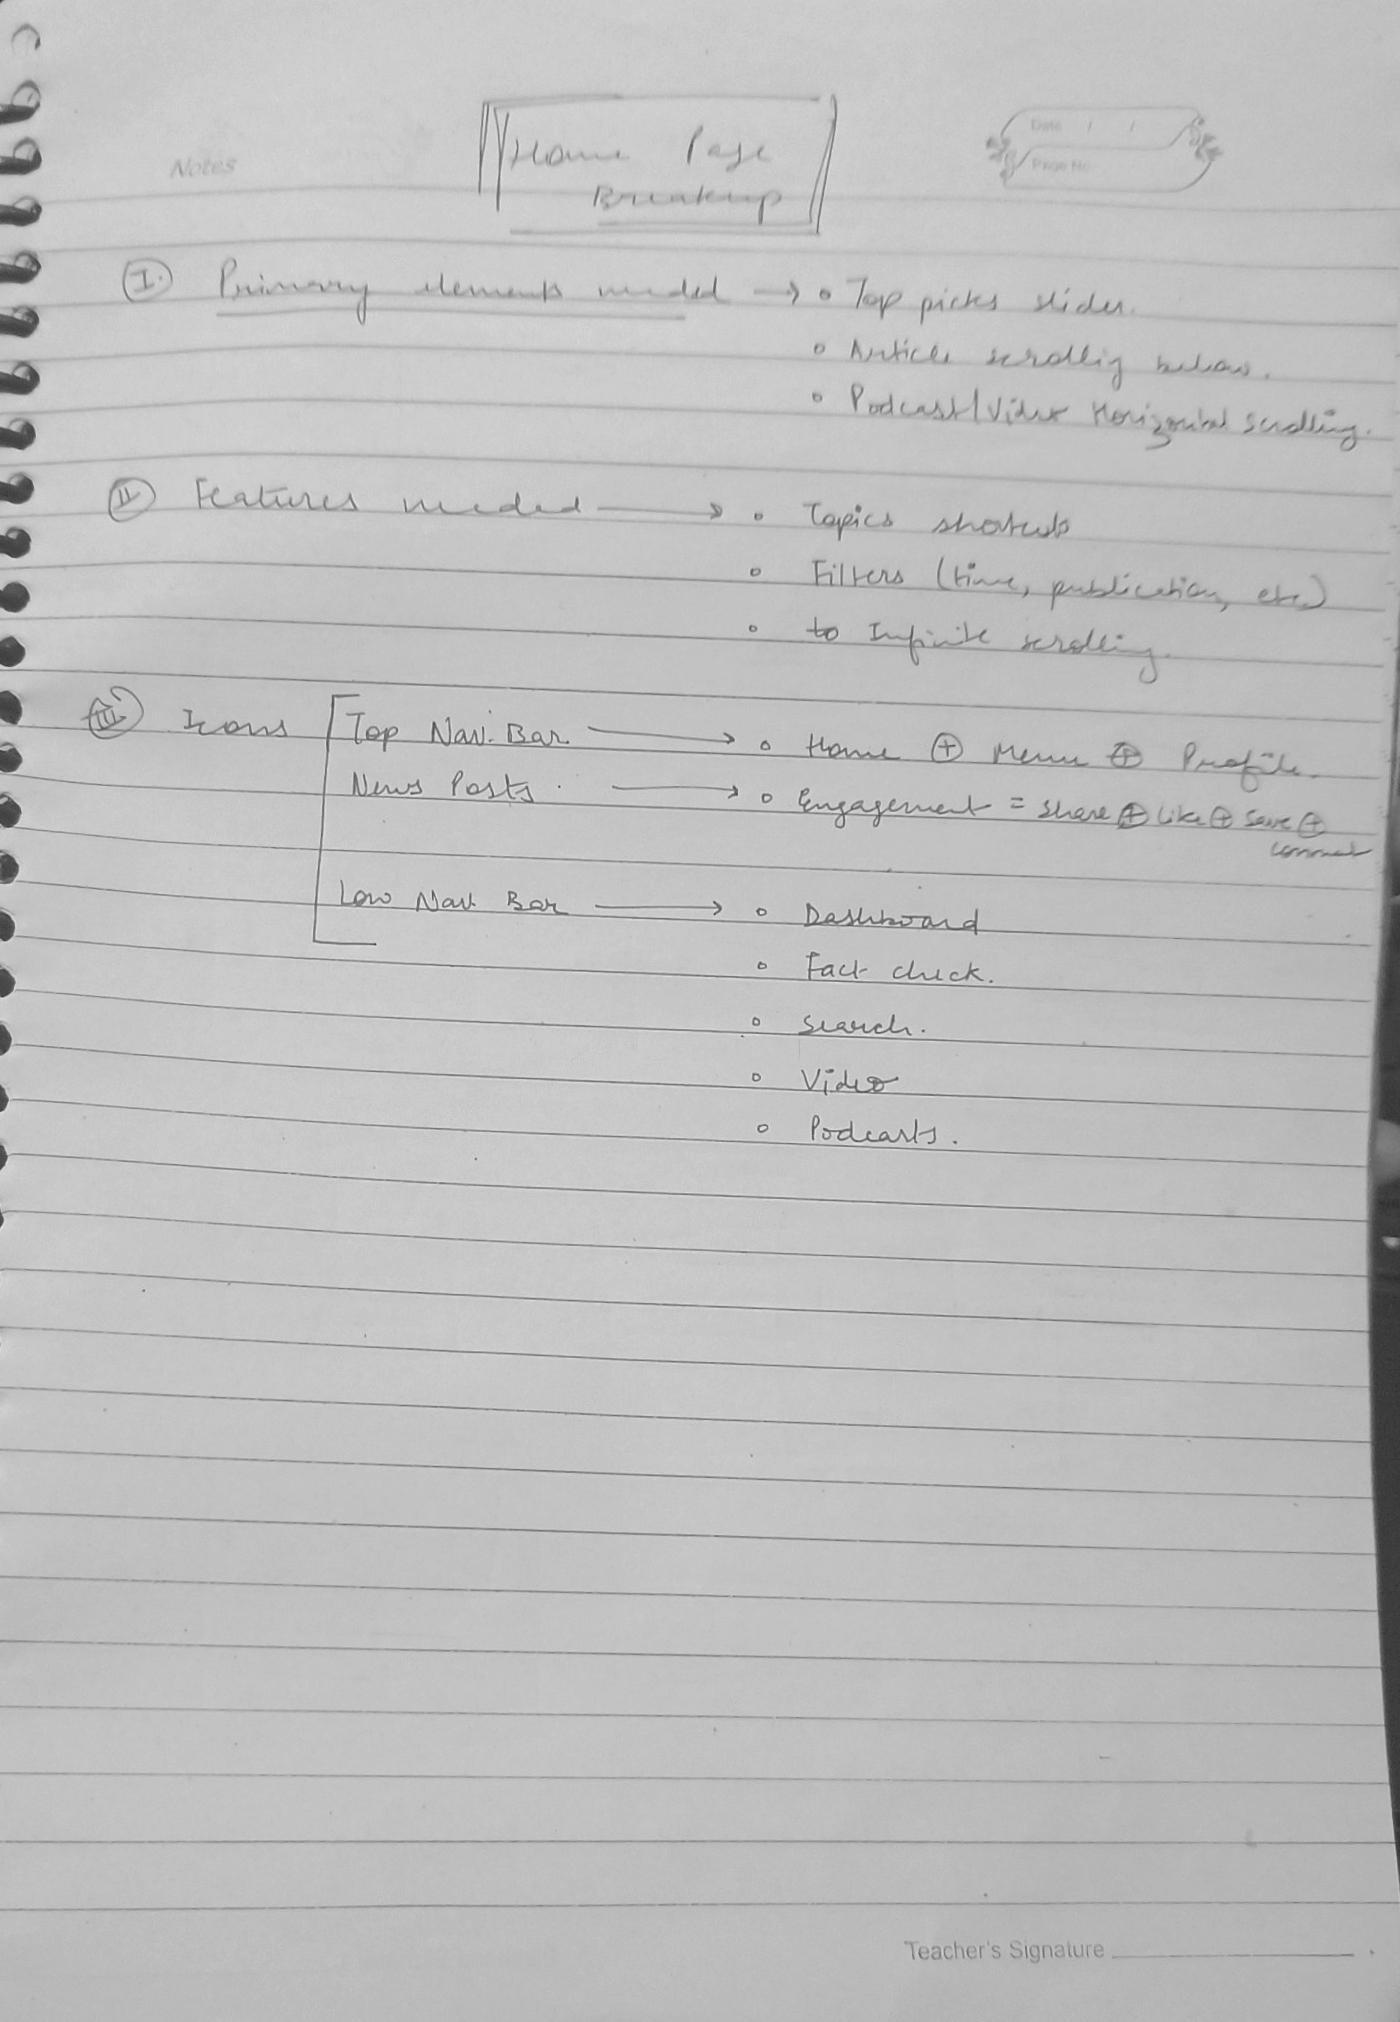 Notes
Home Page
Breakup
Date / /
Page No.
I. Primary elements needed → Top picks slider.
Article scrolling below.
Podcast/Video Horizontal scrolling.
II Features needed → Topics shortcuts
Filters (time, publication, etc.)
to Infinite scrolling.
III Icons
Top Nav. Bar → Home ⊕ Menu ⊕ Profile.
News Posts. → Engagement = share ⊕ Like ⊕ save ⊕
comment
Low Nav. Bar → Dashboard
Fact check.
Search.
Video
Podcasts.
Teacher's Signature